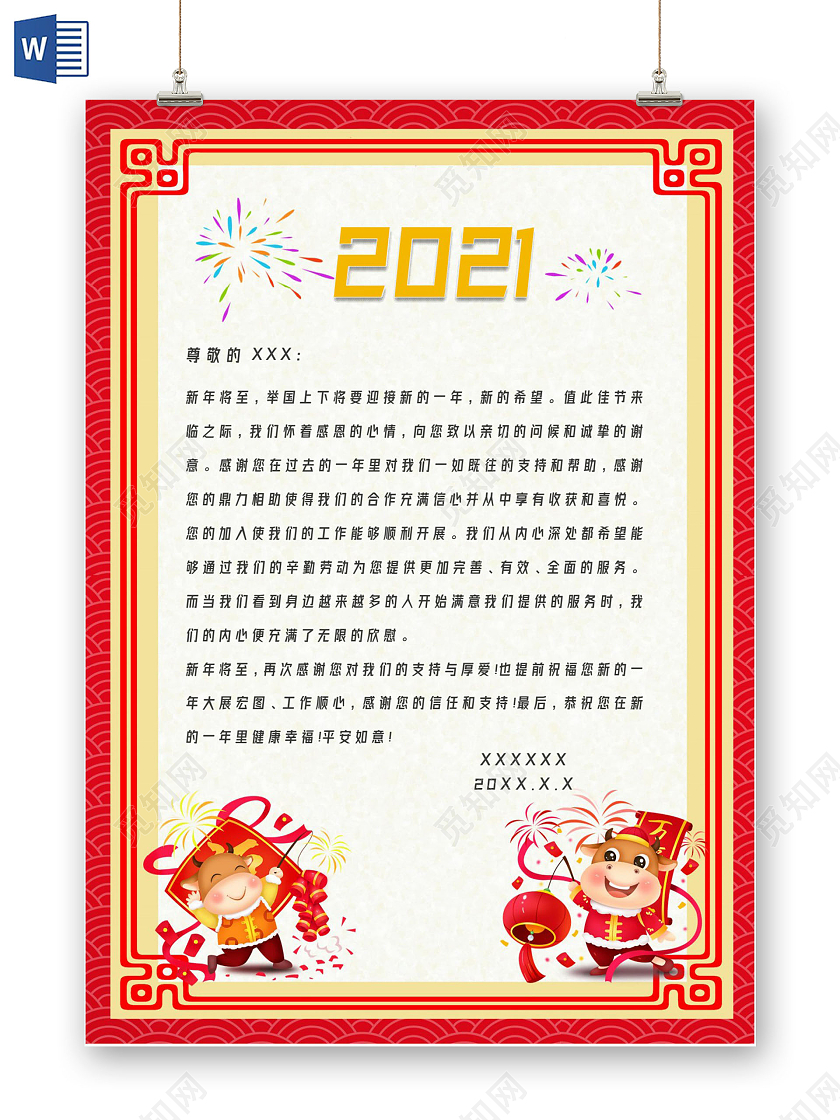 W
2021
尊敬的 XXX:
新年将至,举国上下将要迎接新的一年,新的希望。值此佳节来
临之际,我们怀着感恩的心情,向您致以亲切的问候和诚挚的谢
意。感谢您在过去的一年里对我们一如既往的支持和帮助,感谢
您的鼎力相助使得我们的合作充满信心并从中享有收获和喜悦。
您的加入使我们的工作能够顺利开展。我们从内心深处都希望能
够通过我们的辛勤劳动为您提供更加完善、有效、全面的服务。
而当我们看到身边越来越多的人开始满意我们提供的服务时,我
们的内心便充满了无限的欣慰。
新年将至,再次感谢您对我们的支持与厚爱!也提前祝福您新的一
年大展宏图、工作顺心,感谢您的信任和支持!最后,恭祝您在新
的一年里健康幸福!平安如意!
XXXXXX
20XX.X.X
万
觅知网